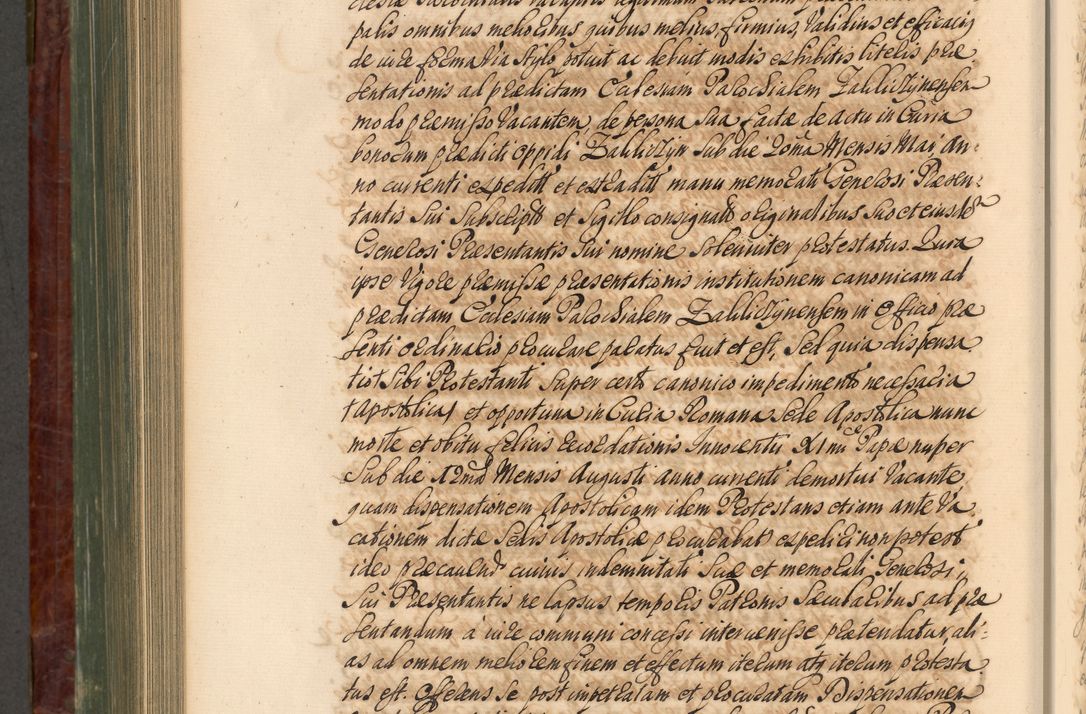 palis omnibus melioribus quibus melius, firmius, Validius et efficaciq
de iure forma Via Stylo potuit ac debuit modis exhibitis literis præ
sentationis ad prædictam Ecclesiam Parochialem Zakliczynensem
modo præmisso Vacantem, de persona sua factæ de actu in Curia
bonorum prædicti oppidi Zakliczyn sub die 20ma Mensis Maij an-
no currenti expediti et extraditi manu memorati Generosi Præsen-
tantis sui subscripto et sigillo consignato originalibus suo et eiusdem
Generosi Præsentantis sui nomine solenniter protestatus. Quia
ipse Vigore præmissæ præsentationis institutionem canonicam ad
prædictam Ecclesiam Parochialem Zakliczynensem in Officio præ
senti ordinario procurare paratus fuit et est, sed quia dispensa
tio sibi Protestanti super certo canonico impedimento necessaria
Apostolica, et opportuna in Curia Romana Sede Apostolica nunc
morte et obitu felicis recordationis Innocentii XI mi Papæ nuper
sub die 12ma Mensis Augusti anno currenti demortui Vacante
quam dispensationem Apostolicam idem Protestans etiam ante Va
cationem dictæ Sedis Apostolicæ procurabat expediri non potest
ideo præcavendo cuiuis indemnitati suæ et memorati Generosi
sui Præsentantis ne lapsus temporis Patronis Sæcularibus ad præ
sentandum à iure communi concessi intervenisse prætendatur, ali-
as ad omnem meliorem finem et effectum iterum atq iterum protesta
tus est. Offerens se post impetratam et procuratam Dispensationem